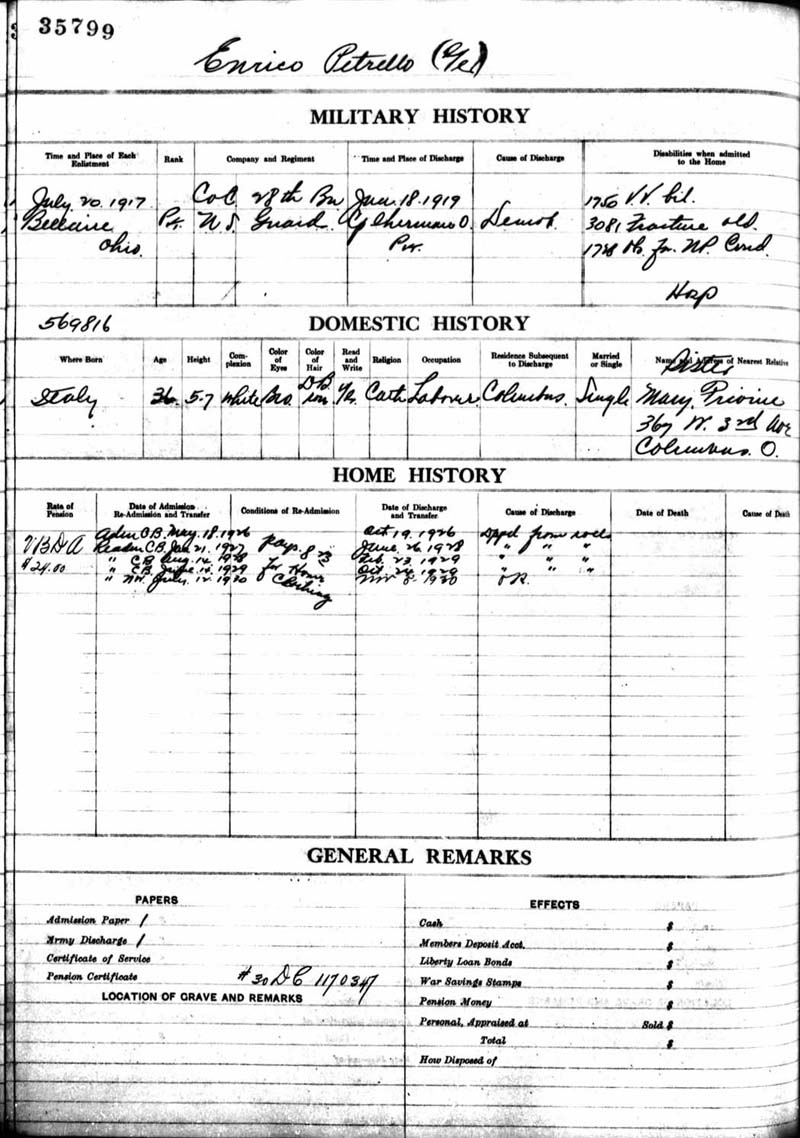 35799
Enrico Petrello
MILITARY HISTORY
Time and Place of Each Enlistment
Rank
Company and Regiment
Time and Place of Discharge
Cause of Discharge
Disabilities when admitted to the Home
July 20. 1917 Co C. 28th Jan. 18. 1919 1750 V.V. bil.
Bellaire Guard. Cp Sherman O. Demob. 3081 Fracture old.
Ohio. Pvt. 1728 N.P. Cond.
Hosp
569816
DOMESTIC HISTORY
Where Born
Age
Height
Complexion
Color of Eyes
Color of Hair
Read and Write
Religion
Occupation
Residence Subsequent to Discharge
Married or Single
Name and Address of Nearest Relative
Sister
Italy 36 5-7 White Bro. Yes. Cath Laborer Columbus. Single Mary
367 W. 3rd Ave
Columbus. O.
HOME HISTORY
Rate of Pension
Date of Admission Re-Admission and Transfer
Conditions of Re-Admission
Date of Discharge and Transfer
Cause of Discharge
Date of Death
Cause of Death
Adm C.B. May. 18. 1926 Oct. 19. 1926 Dppd from rolls
Readm C.B. Jan. 21. 1927 Pays June. 26. 1928 " " "
" C.B. Aug. 14. 1928 Feb. 23. 1929 " " "
$24.00 " C.B. June. 1929 for Home Oct. 24. 1929 " " "
" July. 12. 1930 Clothing Nov 1930 OR.
GENERAL REMARKS
PAPERS
Admission Paper 1
Army Discharge 1
Certificate of Service
Pension Certificate #30 DC 1170347
LOCATION OF GRAVE AND REMARKS
EFFECTS
Cash $
Members Deposit Acct. $
Liberty Loan Bonds $
War Savings Stamps $
Pension Money $
Personal, Appraised at Sold $
Total $
How Disposed of